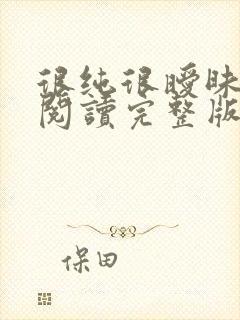 很純很曖昧
閱讀完整版
保田